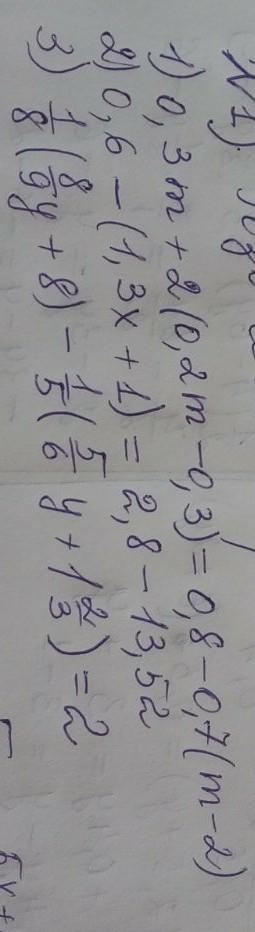 №1)
1) 0,3m + 2(0,2m - 0,3) = 0,8 - 0,7(m - 2)
2) 0,6 - (1,3x + 1) = 2,8 - 13,52
3) 1/8 (8/9 y + 8) - 1/5 (5/6 y + 1 2/3) = 2